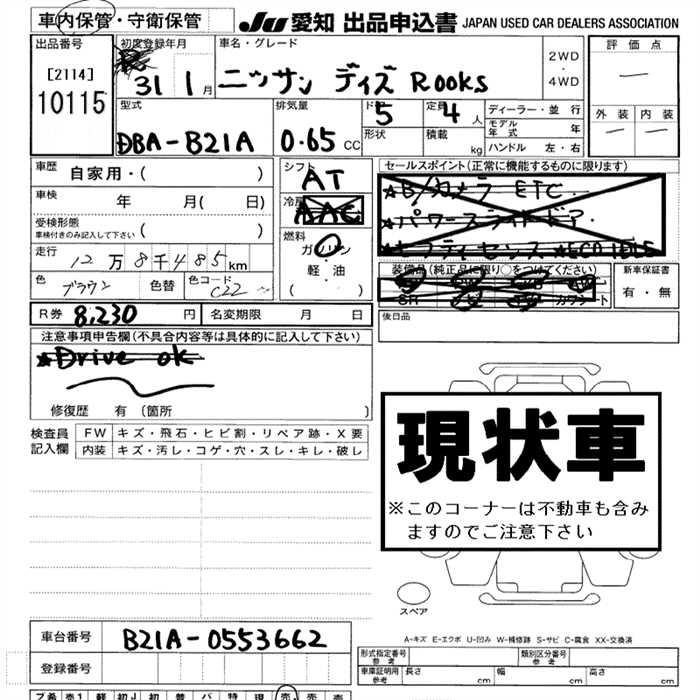 車内保管・守衛保管 JU 愛知 出品申込書 JAPAN USED CAR DEALERS ASSOCIATION
出品番号 初度登録年月 車名・グレード 2WD・4WD 評価点
[2114] 10115 31 1月 ニッサン デイズ Rooks 外装 内装
型式 排気量 ド 5 定員 4人 ディーラー・並行
DBA-B21A 0.65 CC 形状 積載 kg モデル年式 年
ハンドル 左・右
車歴 自家用・( ) シフト AT セールスポイント(正常に機能するものに限ります)
車検 年 月( 日) 冷房 AAC ★Bノカメラ ETC
受検形態 車検付きのみ記入して下さい ( ) ★パワースライドドア
燃料 ガソリン・軽・油 ( ) ★セーフティセンス ★ECO IDLE
走行 12万8千485km 装備品(純正品に限り○をつけてください) 新車保証書
色 ブラウン 色替 色コード C22 SR カワシート 有・無
R券 8,230円 名変期限 月 日 後日品
注意事項申告欄(不具合内容等は具体的に記入して下さい)
★Drive ok
修復歴 有 (箇所 )
検査員記入欄 FW キズ・飛石・ヒビ割・リペア跡・X要
内装 キズ・汚レ・コゲ・穴・スレ・キレ・破レ
現状車
※このコーナーは不動車も含み
ますのでご注意下さい
スペア
A-キズ E-エクボ U-凹み W-補修跡 S-サビ C-腐食 XX-交換済
車台番号 B21A-0553662 型式指定番号 参考 類別区分番号 参考
登録番号 車庫証明用 参考 長さ cm 幅 cm 高さ cm